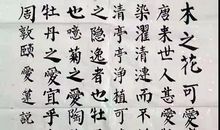 木之花可愛
唐來世人甚愛
染濯清漣而不
清亭淨植可
之隱逸者也牡
也噫菊之愛陶
牡丹之愛宜乎
周敦頤愛蓮說